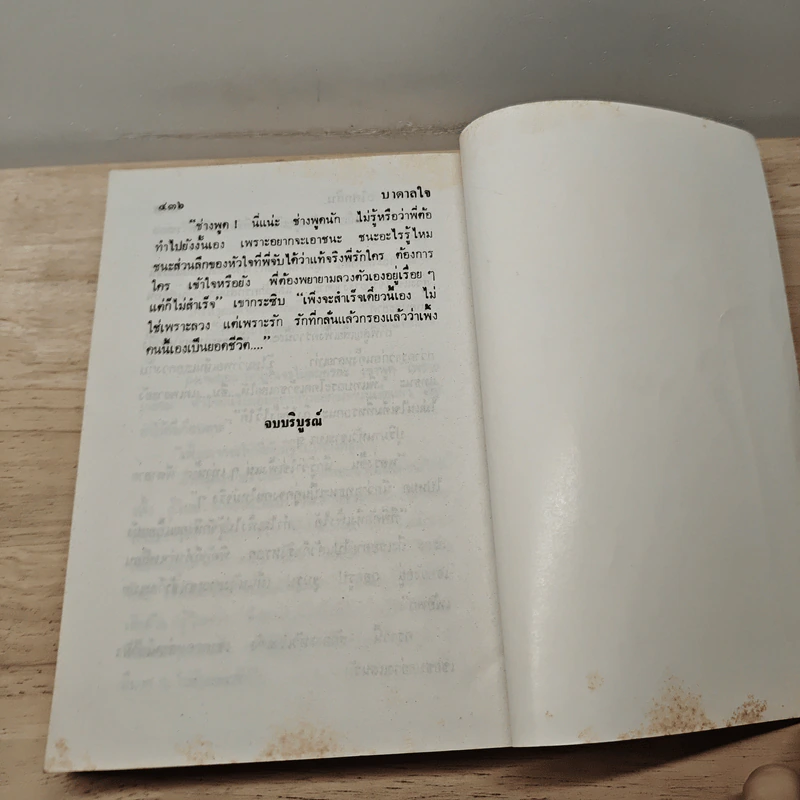 ๔๓๒
บาดาลใจ
"ช่างพูด ! นี่แน่ะ ช่างพูดนัก ไม่รู้หรือว่าพี่ต้อ
ทำไปยังงั้นเอง เพราะอยากจะเอาชนะ ชนะอะไรรู้ไหม
ชนะส่วนลึกของหัวใจที่พี่จับได้ว่าแท้จริงพี่รักใคร ต้องการ
ใคร เข้าใจหรือยัง พี่ต้องพยายามลวงตัวเองอยู่เรื่อย ๆ
แต่ก็ไม่สำเร็จ" เขากระซิบ "เพิ่งจะสำเร็จเดี๋ยวนี้เอง ไม่
ใช่เพราะลวง แต่เพราะรัก รักที่กลั่นแล้วกรองแล้วว่าเพิ้ง
คนนี้เองเป็นยอดชีวิต...."
จบบริบูรณ์